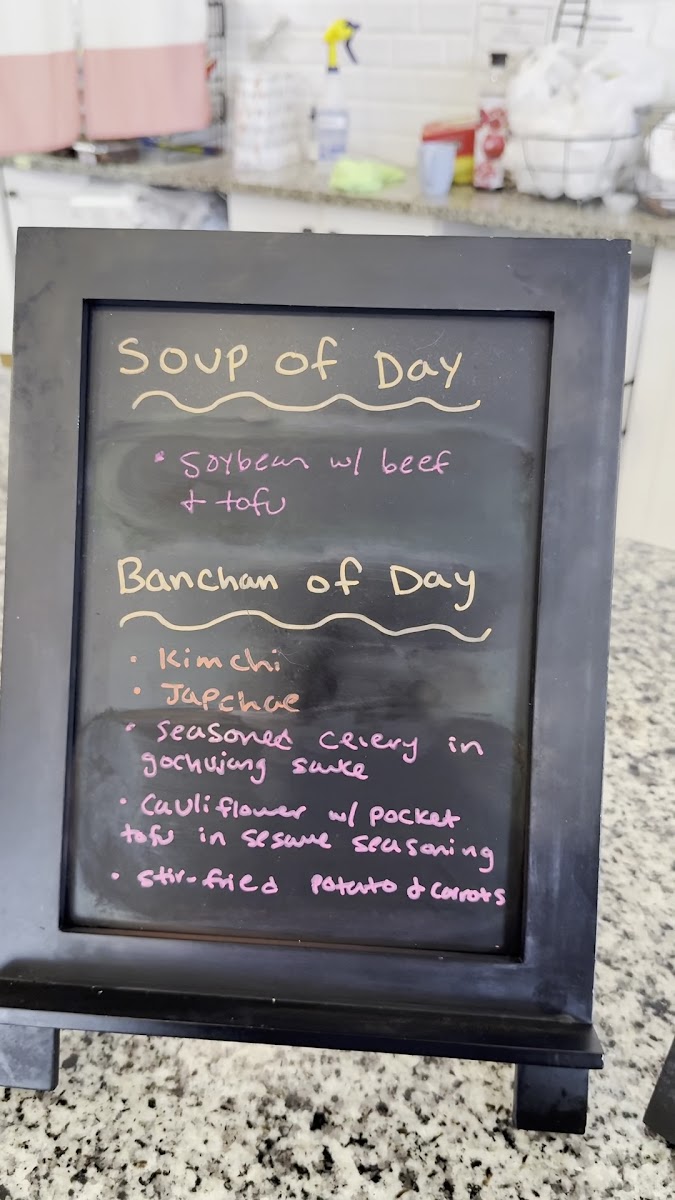 Soup of Day
• Soybean w/ beef
& tofu
Banchan of Day
• Kimchi
• Japchae
• Seasoned celery in
gochujang sauke
• Cauliflower w/ pocket
tofu in sesame seasoning
• Stir-fried potato & carrots